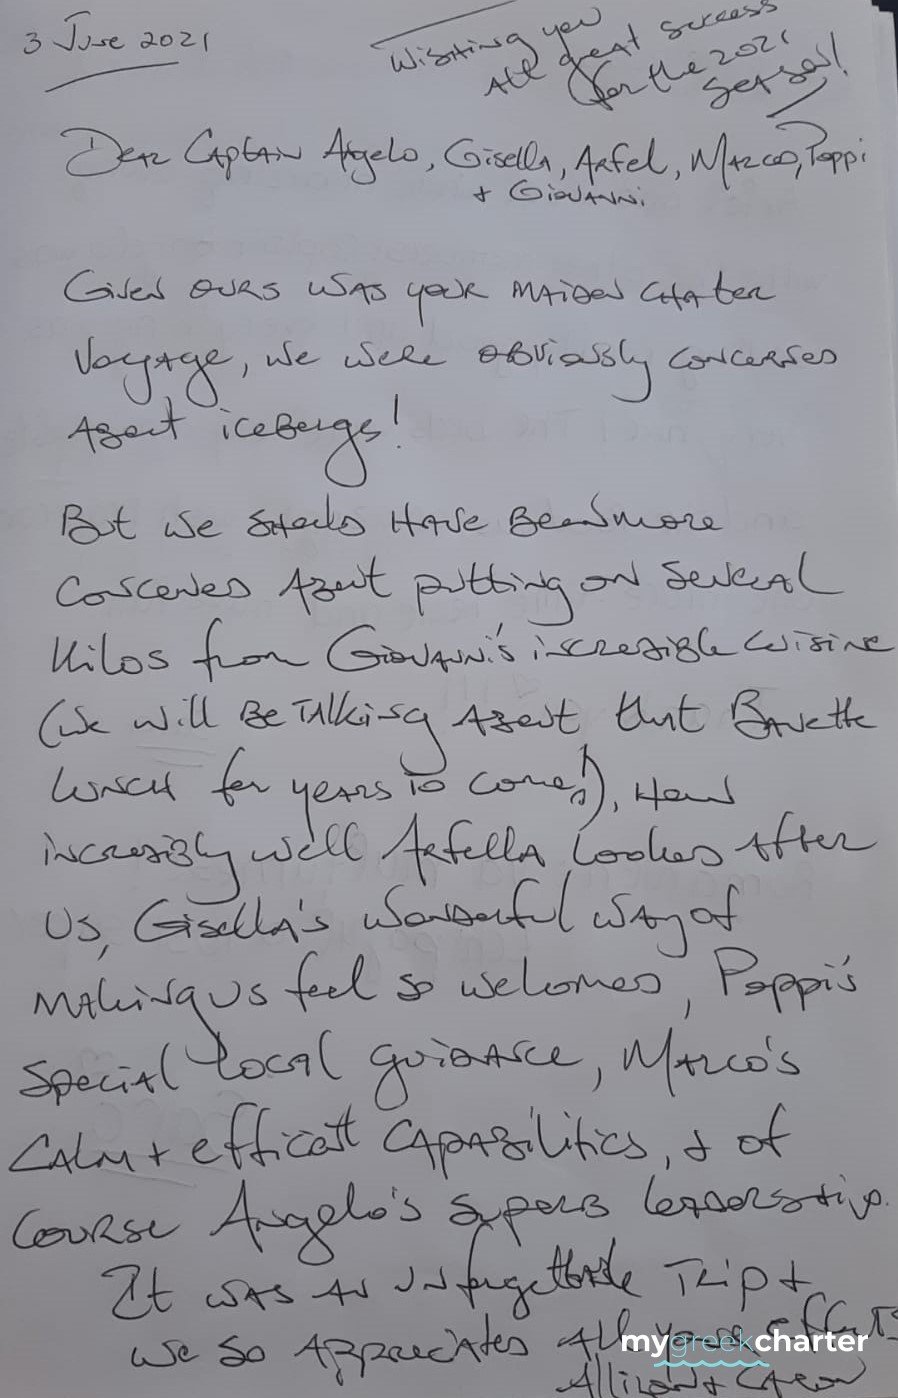 3 June 2021
Wishing you
All great success
for the 2021
season!
Dear Captain Angelo, Gisella, Arfel, Marco, Poppi
+ Giovanni
Given ours was your maiden charter
voyage, we were obviously concerned
about icebergs!
But we should have been more
concerned about putting on several
kilos from Giovanni's incredible cuisine
(we will be talking about that Bavette
lunch for years to come!), how
incredibly well Arfella looked after
us, Gisella's wonderful way of
making us feel so welcomed, Poppi's
special local guidance, Marco's
calm + efficient capabilities, + of
course Angelo's superb leadership.
It was an unforgettable trip +
we so appreciated all your efforts
Allison + Caron
mygreekcharter